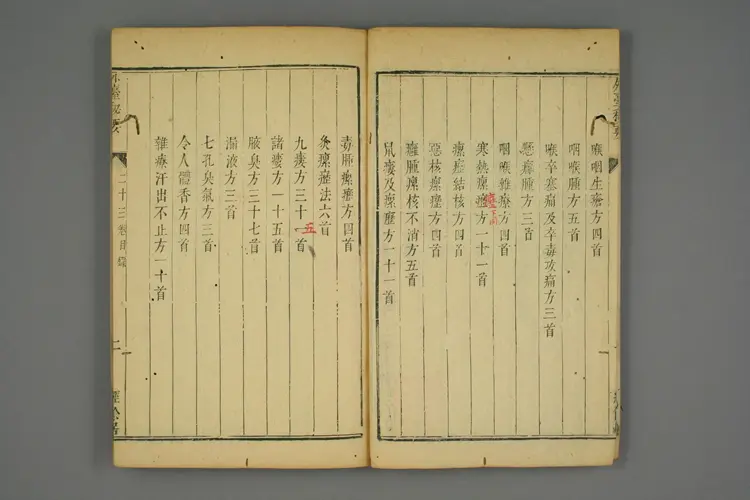 喉咽生瘡方四首
咽喉腫方五首
喉卒塞痛及卒毒攻痛方三首
懸癰腫方三首
咽喉雜療方四首
寒熱瘰癧方一十一首
瘰癧結核方四首
惡核瘰癧方四首
癰腫瘰核不消方五首
鼠瘻及瘰癧方一十一首
毒腫瘰癧方四首
灸瘰癧法六首
九瘻方三十一首
五
諸瘻方一十五首
腋臭方三十七首
漏液方三首
七孔臭氣方三首
令人體香方四首
雜療汗出不止方一十首
外臺秘要
二十三卷目錄
二
經餘居